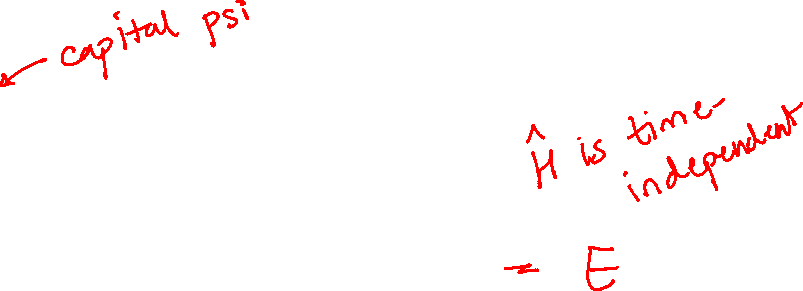 ← capital psi
Ĥ is time-
independent
= E